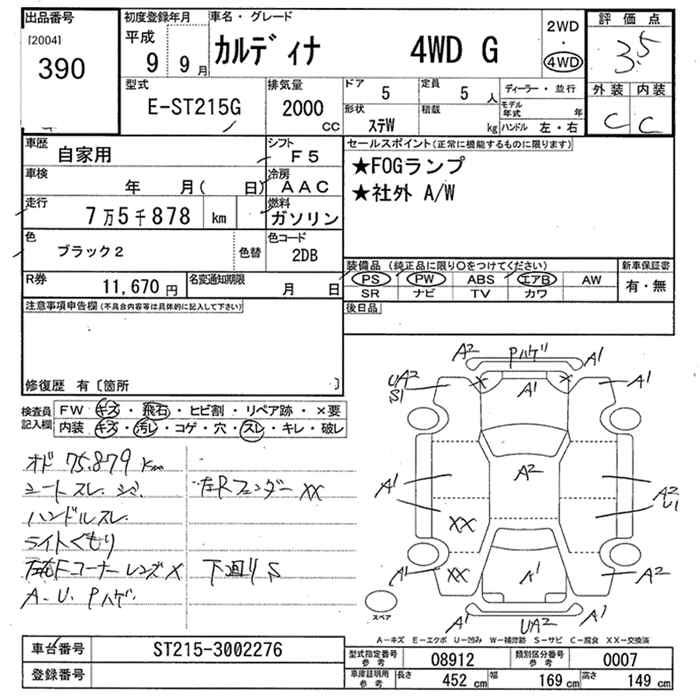 出品番号
[2004]
390
初度登録年月
平成
9 9 月
車名・グレード
カルディナ 4WD G
2WD
・
4WD
評価点
3.5
外装 内装
C C
型式
E-ST215G
排気量
2000
CC
ドア
5
定員
5 人
ディーラー・並行
形状
ステW
積載
kg
モデル
年式 年
ハンドル 左・右
車歴
自家用
シフト
F5
車検
年 月( 日)
冷房
AAC
走行
7万5千878 km
燃料
ガソリン
色
ブラック2
色替
色コード
2DB
R券
11,670 円
名変通知期限
月 日
セールスポイント(正常に機能するものに限ります)
★FOGランプ
★社外 A/W
装備品 (純正品に限り○をつけてください)
新車保証書
PS PW ABS エアB AW
SR ナビ TV カワ
有・無
後日品
注意事項申告欄(不具合内容等は具体的に記入して下さい)
修復歴 有〔箇所 〕
検査員
記入欄
FW キズ・飛石・ヒビ割・リペア跡・×要
内装 キズ・汚レ・コゲ・穴・スレ・キレ・破レ
オド 75.879 km
シートスレ シミ
ハンドルスレ
ライトくもり
左右Fコーナーレンズ X
A.U.Pハゲ
左Rフェンダー XX
下回りS
A2 Pハゲ A1
UA2
S1
X A1 X
A1
A1
A2
A2
U1
XX
A1
XX
A1
A2
A1
UA2
A1
スペア
A－キズ E－エクボ U－凹み W－補修跡 S－サビ C－腐食 XX－交換済
車台番号
ST215-3002276
登録番号
型式指定番号
参考
08912
類別区分番号
参考
0007
車庫証明用
参考
長さ
452 cm
幅
169 cm
高さ
149 cm